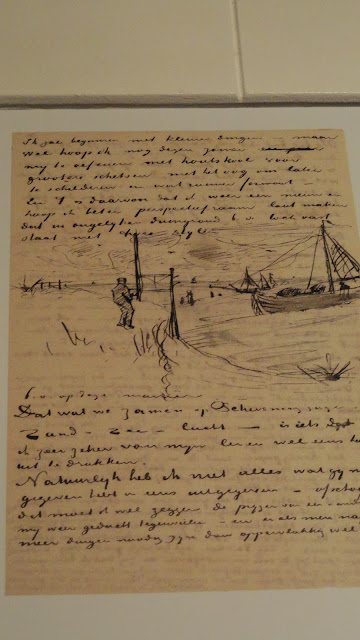 Ik zal beginnen met kleine dingen – maar
wel hoop ik nog dezen zomer
my te oefenen met houtskool voor
grootere schetsen met het oog om later
te schilderen en wat ruimer formaat –
En 't is daarom dat ik weer een nieuw en
hoop ik beter perspectiefraam laat maken
dat in ongelyken duingrond b.v. kan vast
staan met twee
b.v. op deze manier
Dat wat we zamen op Scheveningen zagen
Zand – Zee – lucht – is iets dat
ik zeer zeker van myn leven wel eens hoop
uit te drukken.
Natuurlyk heb ik niet alles wat gy my
gegeven hebt in eens uitgegeven – ofschoon
dit moet ik wel zeggen de pryzen van een & ander
my weer geducht tegenvielen – en er als men na
meer dingen noodig zyn dan oppervlakkig wel